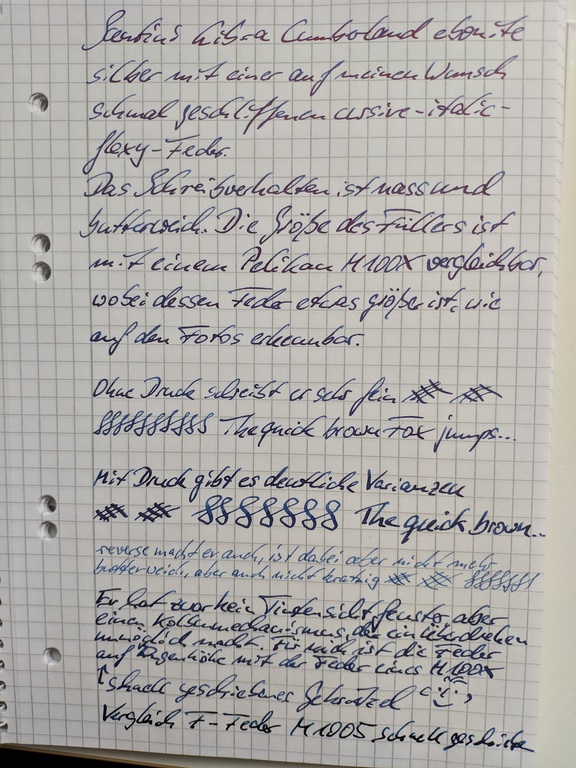 Santini Libra Cumberland ebonite
silber mit einer auf meinen Wunsch
schmal geschliffenen cursive-italic-
flexy-Feder.
Das Schreibverhalten ist nass und
butterweich. Die Größe des Füllers ist
mit einem Pelikan M100X vergleichbar,
wobei dessen Feder etwas größer ist, wie
auf den Fotos erkennbar.
Ohne Druck schreibt er sehr fein
The quick brown Fox jumps...
Mit Druck gibt es deutliche Varianzen
The quick brown..
reverse macht er auch, ist dabei aber nicht mehr
butterweich, aber auch nicht kratzig
Er hat zwar kein Tintensichtfenster, aber
einen Kolbenmechanismus, der ein Überdrehen
unmöglich macht. Für mich ist die Feder
auf Augenhöhe mit der Feder eines M100X
↑ schnell geschriebenes
Vergleich F-Feder M1005 schnell geschrieben